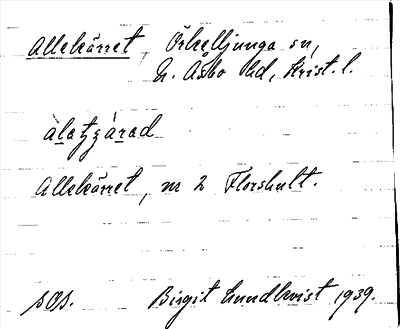 Allekärret, Örkelljunga sn,
N. Åsbo hd, Krist. l.
àlatzárad
Allekärret, nr 2 Florshult.
sOs. Birgit Lundkvist 1939.